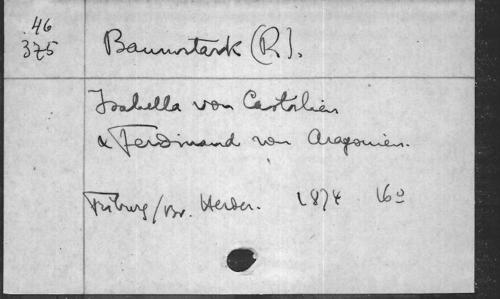 46
375
Baumstark (R).
Isabella von Castilien
& Ferdinand von Aragonien.
Friburg/Br. Herder. 1874 16º